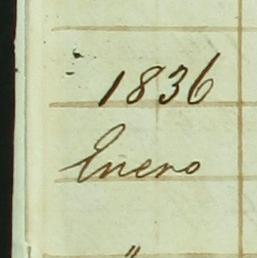 1836
Enero
"